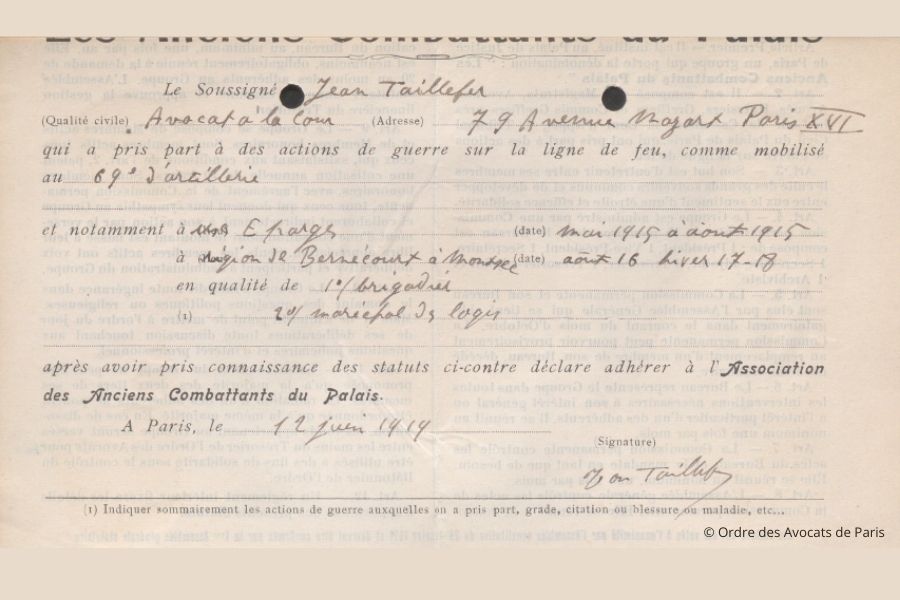 Les Anciens Combattants du Palais
Le Soussigné Jean Taillefer
(Qualité civile) Avocat a la Cour (Adresse) 79 Avenue Mozart Paris XVI
qui a pris part à des actions de guerre sur la ligne de feu, comme mobilisé
au 69e d'artillerie
et notamment à Eparges (date) mai 1915 à aout 1915
à région de Bernécourt à Montsec (date) août 16 hiver 17-18
en qualité de 1°/ brigadier
(1) 2°/ maréchal des logis
après avoir pris connaissance des statuts ci-contre déclare adhérer à l'Association
des Anciens Combattants du Palais.
A Paris, le 12 juin 1919
(Signature)
Jean Taillefer
(1) Indiquer sommairement les actions de guerre auxquelles on a pris part, grade, citation ou blessure ou maladie, etc...
© Ordre des Avocats de Paris